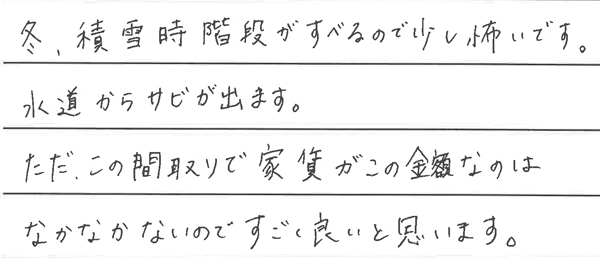 冬、積雪時階段がすべるので少し怖いです。
水道からサビが出ます。
ただ、この間取りで家賃がこの金額なのは
なかなかないのですごく良いと思います。